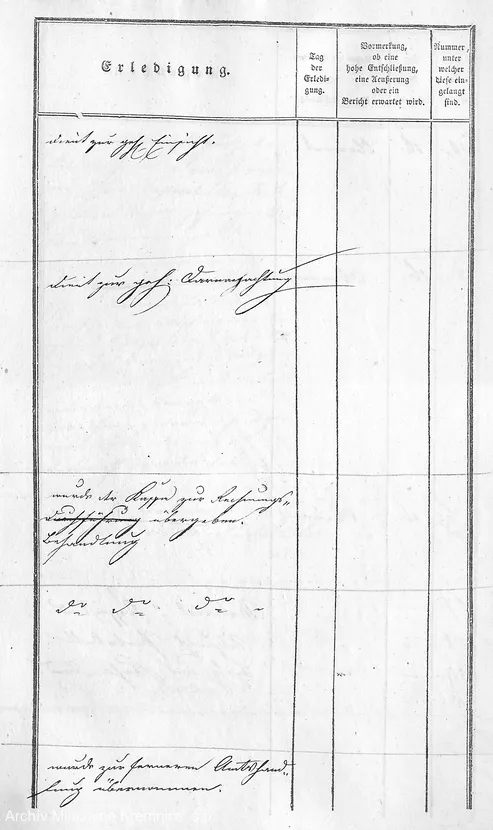 Erledigung.
Tag
der
Erledi-
gung.
Vormerkung,
ob eine
hohe Entschließung,
eine Aeußerung
oder ein
Bericht erwartet wird.
Nummer,
unter
welcher
diese ein-
gelangt
sind.
dient zur geh. Einsicht.
dient zur geh: Darnachachtung
wurde der Kassa zur Rechnungs-
Durchführung übergeben.
behandlung
do do do
wurde zur ferneren Amtshand-
lung übernommen.